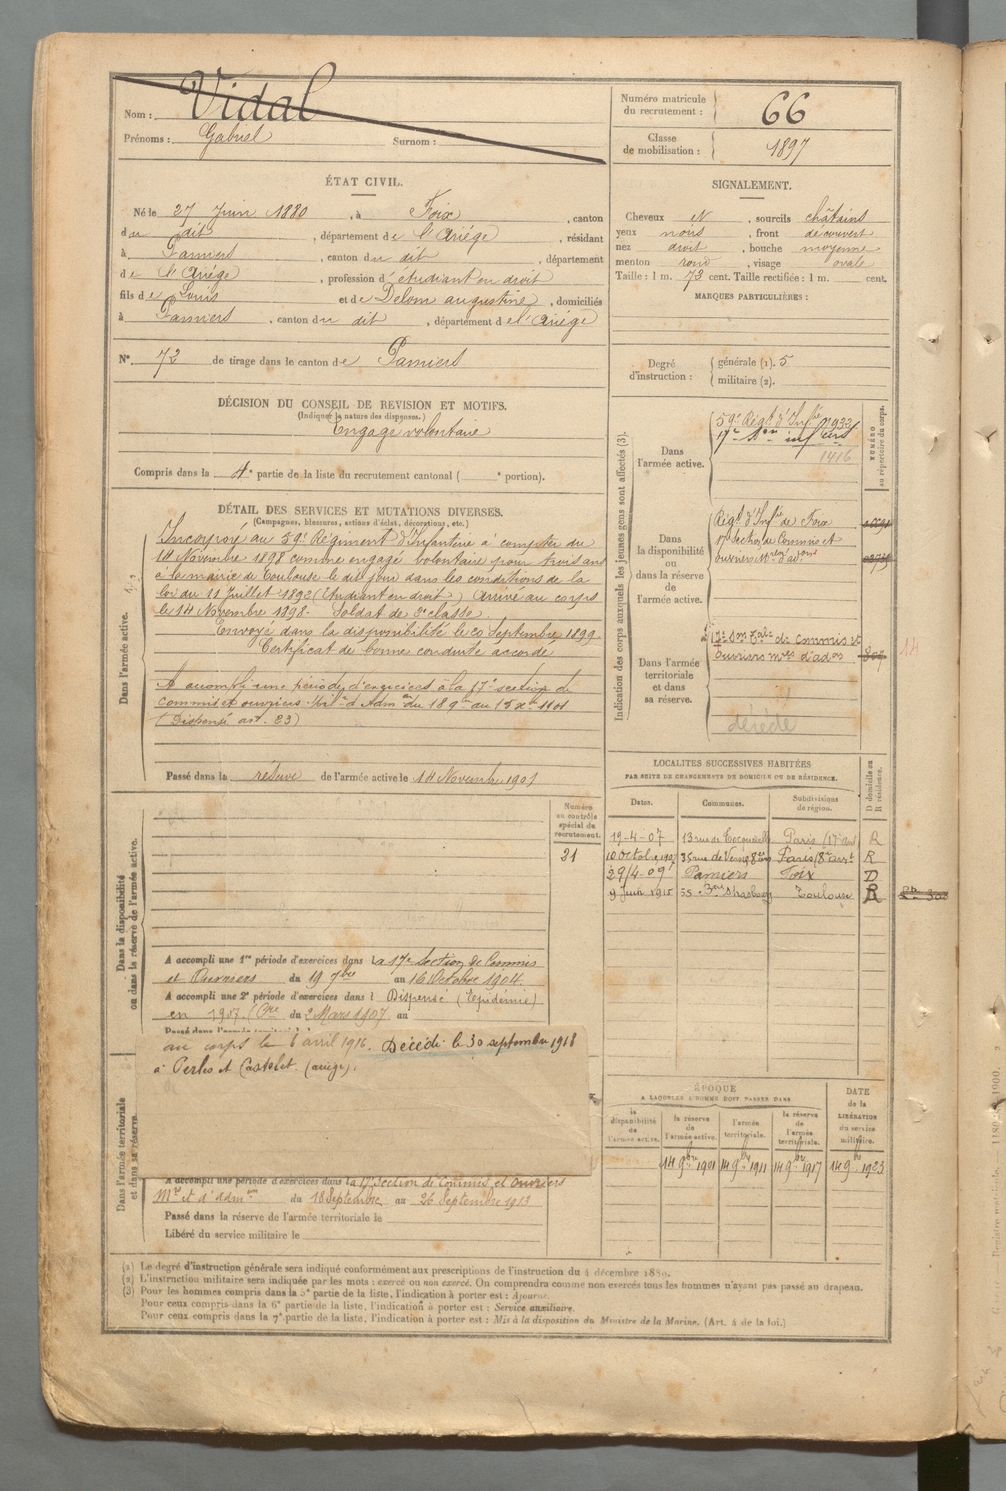 Nom : Vidal
Prénoms : Gabriel Surnom :
Numéro matricule du recrutement : 66
Classe de mobilisation : 1897
ÉTAT CIVIL.
Né le 27 Juin 1880, à Foix, canton
du dit, département de l'Ariège, résidant
à Pamiers, canton du dit, département
de l'Ariège, profession d'étudiant en droit
fils de Louis et de Delom augustine, domiciliés
à Pamiers, canton du dit, département de l'Ariège
N° 72 de tirage dans le canton de Pamiers
SIGNALEMENT.
Cheveux N, sourcils châtains
yeux noirs, front découvert
nez droit, bouche moyenne
menton rond, visage ovale
Taille : 1 m. 73 cent. Taille rectifiée : 1 m. cent.
MARQUES PARTICULIÈRES :
Degré d'instruction : générale (1). 5
militaire (2).
DÉCISION DU CONSEIL DE REVISION ET MOTIFS.
(Indiquer la nature des dispenses.)
Engagé volontaire
Compris dans la 4e partie de la liste du recrutement cantonal ( e portion).
DÉTAIL DES SERVICES ET MUTATIONS DIVERSES.
(Campagnes, blessures, actions d'éclat, décorations, etc.)
Dans l'armée active.
Incorporé au 59e Régiment d'Infanterie à compter du
10 Novembre 1898 comme engagé volontaire pour trois ans
à la mairie de Toulouse le dit jour dans les conditions de la
loi du 11 Juillet 1892 (Etudiant en droit) Arrivé au corps
le 14 Novembre 1898. Soldat de 2e classe.
Envoyé dans la disponibilité le 20 Septembre 1899.
Certificat de bonne conduite accordé
A accompli une période d'exercices à la 17e section de
commis et ouvriers
(Dispensé art. 23)
Passé dans la réserve de l'armée active le 14 Novembre 1901
Indication des corps auxquels les jeunes gens sont affectés (3).
NUMÉRO au répertoire du corps.
Dans l'armée active.
59e Régt d'Infie 1933
1416
Dans la disponibilité ou dans la réserve de l'armée active.
Régt d'Infie de Foix
17e Section de Commis et
ouvriers
Dans l'armée territoriale et dans sa réserve.
17e Son Tale de Commis et
ouvriers mres d'adon 14
décédé
LOCALITÉS SUCCESSIVES HABITÉES
PAR SUITE DE CHANGEMENTS DE DOMICILE OU DE RÉSIDENCE.
Dates. Communes. Subdivisions de région. D domicile ou R résidence.
19-4-07 13 rue de Paris R
10 Octobre 35 rue de Paris (8e arrt R
29/4-09 Pamiers Foix D
9 Juin 1915 55 Bard Strasbourg Toulouse R
Numéro au contrôle spécial du recrutement.
21
Dans la disponibilité ou dans la réserve de l'armée active.
A accompli une 1re période d'exercices dans la 17e Section de Commis
et Ouvriers du 19 7bre au 16 Octobre 1904.
A accompli une 2e période d'exercices dans l Dispensé (Epidémie)
en 1907. du 2 Mars 1907 au
au corps le 6 avril 1916. Décédé le 30 septembre 1918
à Perles et Castelet. (ariège).
Dans l'armée territoriale et dans sa réserve.
A accompli une période d'exercices dans la 17 Section de Commis et Ouvriers
Mres et d'admon du 18 Septembre au 26 Septembre 1913
Passé dans la réserve de l'armée territoriale le
Libéré du service militaire le
ÉPOQUE
A LAQUELLE L'HOMME DOIT PASSER DANS
la disponibilité de l'armée active. la réserve de l'armée active. l'armée territoriale. la réserve de l'armée territoriale.
DATE de la LIBÉRATION du service militaire.
14 9bre 1901 14 9bre 1911 14 9bre 1917 14 9bre 1923
(1) Le degré d'instruction générale sera indiqué conformément aux prescriptions de l'instruction du 4 décembre 1889.
(2) L'instruction militaire sera indiquée par les mots : exercé ou non exercé. On comprendra comme non exercés tous les hommes n'ayant pas passé au drapeau.
(3) Pour les hommes compris dans la 5e partie de la liste, l'indication à porter est : Ajourné.
Pour ceux compris dans la 6e partie de la liste, l'indication à porter est : Service auxiliaire.
Pour ceux compris dans la 7e partie de la liste, l'indication à porter est : Mis à la disposition du Ministre de la Marine. (Art. 4 de la loi.)